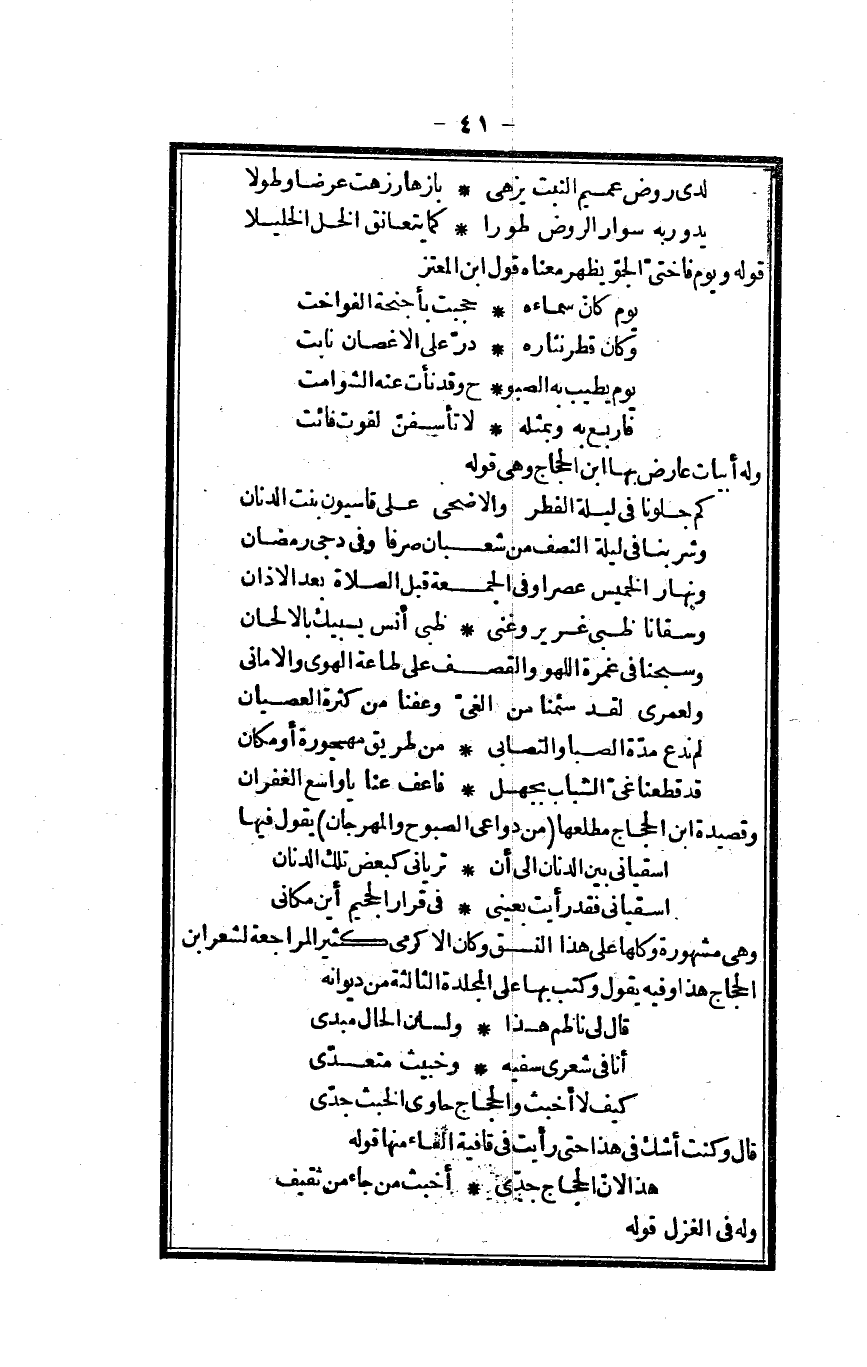 - ٤١ -
لدى روض عميم النبت يزهى * بازهار زهت عرضا وطولا
يدور به سوار الروض طورا * كما يتعانق الخل الخليلا
قوله ويوم فاختى الجوّ يظهر معناه قول ابن المعتز
يوم كانّ سماءه * حجبت بأجنحة الفواخت
وكان قطر نثاره * درّ على الاغصان نابت
يوم يطيب به الصبو * ح وقد نأت عنه الشوامت
فاربع به وبمثله * لا تأسفنّ لقوت فائت
وله أبيات عارض بها ابن الحجاج وهى قوله
كم جلونا فى ليلة الفطر والاضحى على قاسيون بنت الدنان
وشربنا فى ليلة النصف من شعبان صرفا وفى دجى رمضان
ونهار الخميس عصرا وفى الجمعة قبل الصلاة بعد الاذان
وسقانا ظبى غرير وغنى * ظبى أنس يسبيك بالالحان
وسبحنا فى غمرة اللهو والقصف على طاعة الهوى والامانى
ولعمرى لقد سئمنا من الغىّ وعفنا من كثرة العصيان
لم ندع مدّة الصبا والتصابى * من طريق مهجورة أو مكان
قد قطعنا غىّ الشباب بجهل * فاعف عنا ياواسع الغفران
وقصيدة ابن الحجاج مطلعها (من دواعى الصبوح والمهرجان) يقول فيها
اسقيانى بين الدنان الى أن * تريانى كبعض تلك الدنان
اسقيانى فقد رأيت بعينى * فى قرار الجحيم أين مكانى
وهى مشهورة وكلها على هذا النسق وكان الاكرمى كثير المراجعة لشعر ابن
الحجاج هذا وفيه يقول وكتب بها على المجلدة الثالثة من ديوانه
قال لى ناظم هذا * ولسان الحال مبدى
أنا فى شعرى سفيه * وخبيث متعدّى
كيف لا أخبث والحجاج حاوى الخبث جدّى
قال وكنت أشك فى هذا حتى رأيت فى قافية الفاء منها قوله
هذا لانّ الحجاج جدّى * أخبث من جاء من ثقيف
وله فى الغزل قوله